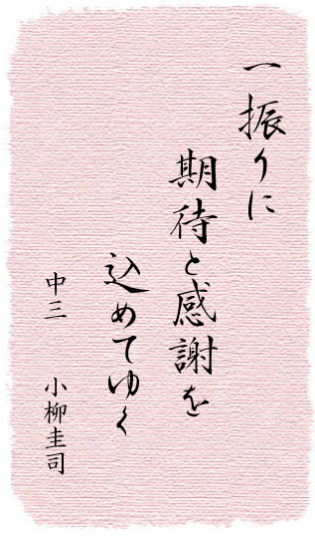 一振りに
期待と感謝を
込めてゆく
中三 小柳圭司